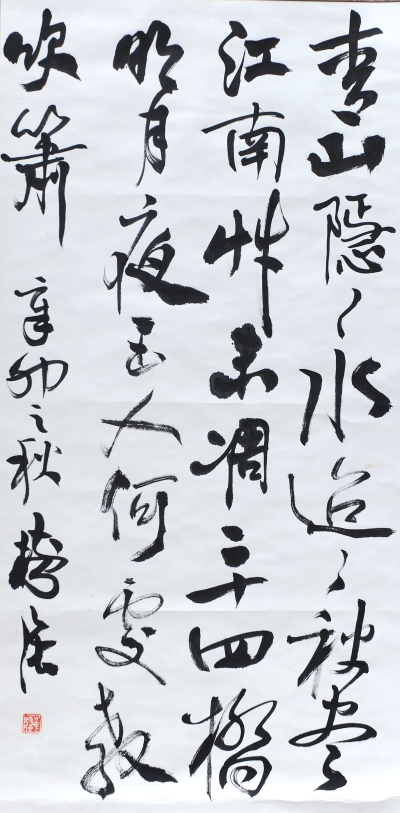 青山隱々水迢々秋尽
江南艸未凋二十四橋
明月夜玉人何處教
吹簫 辛卯之秋